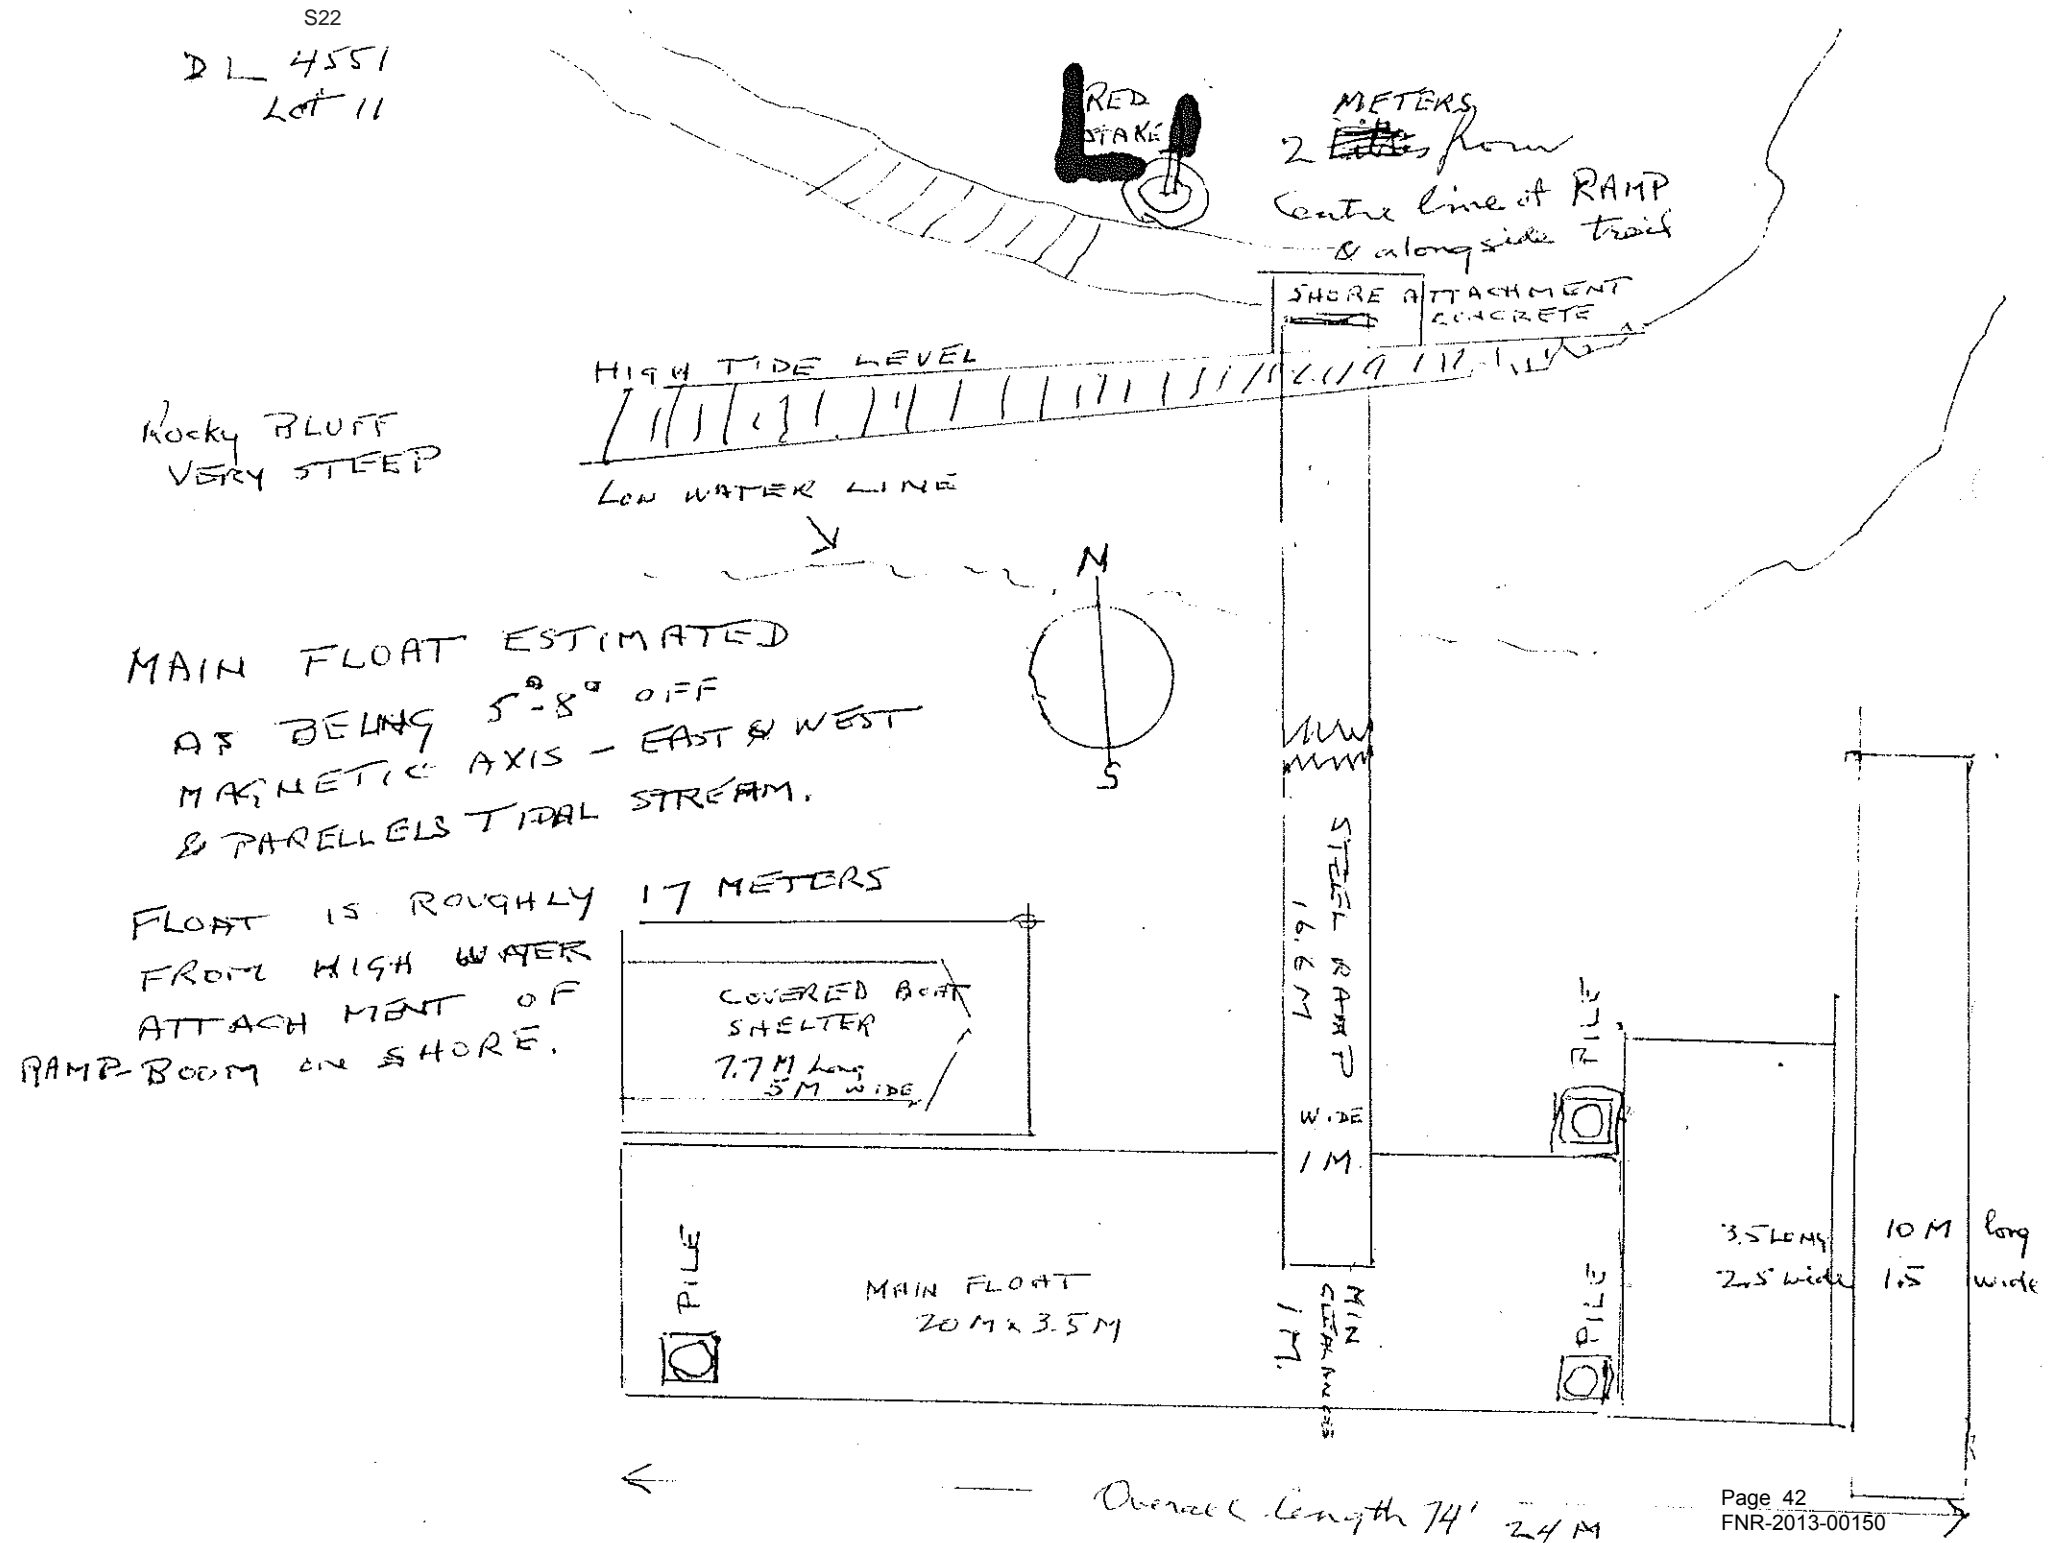 S22
DL 4551
Lot 11
RED
STAKE
METERS
2 from
Centre line of RAMP
& alongside trail
SHORE ATTACHMENT
CONCRETE
HIGH TIDE LEVEL
Rocky BLUFF
VERY STEEP
LOW WATER LINE
N
S
MAIN FLOAT ESTIMATED
AS BEING 5°-8° OFF
MAGNETIC AXIS - EAST & WEST
& PARELLELS TIDAL STREAM.
FLOAT IS ROUGHLY 17 METERS
FROM HIGH WATER
ATTACHMENT OF
RAMP-BOOM ON SHORE.
COVERED BOAT
SHELTER
7.7 M Long
5M WIDE
STEEL RAMP
16.6 M
WIDE
1 M.
PILE
PILE
PILE
MAIN FLOAT
20 M x 3.5 M
MIN
CLEARANCES
1 M.
3.5 LONG
2.5 wide
10 M long
1.5 wide
Overall length 74' 24 M
Page 42
FNR-2013-00150